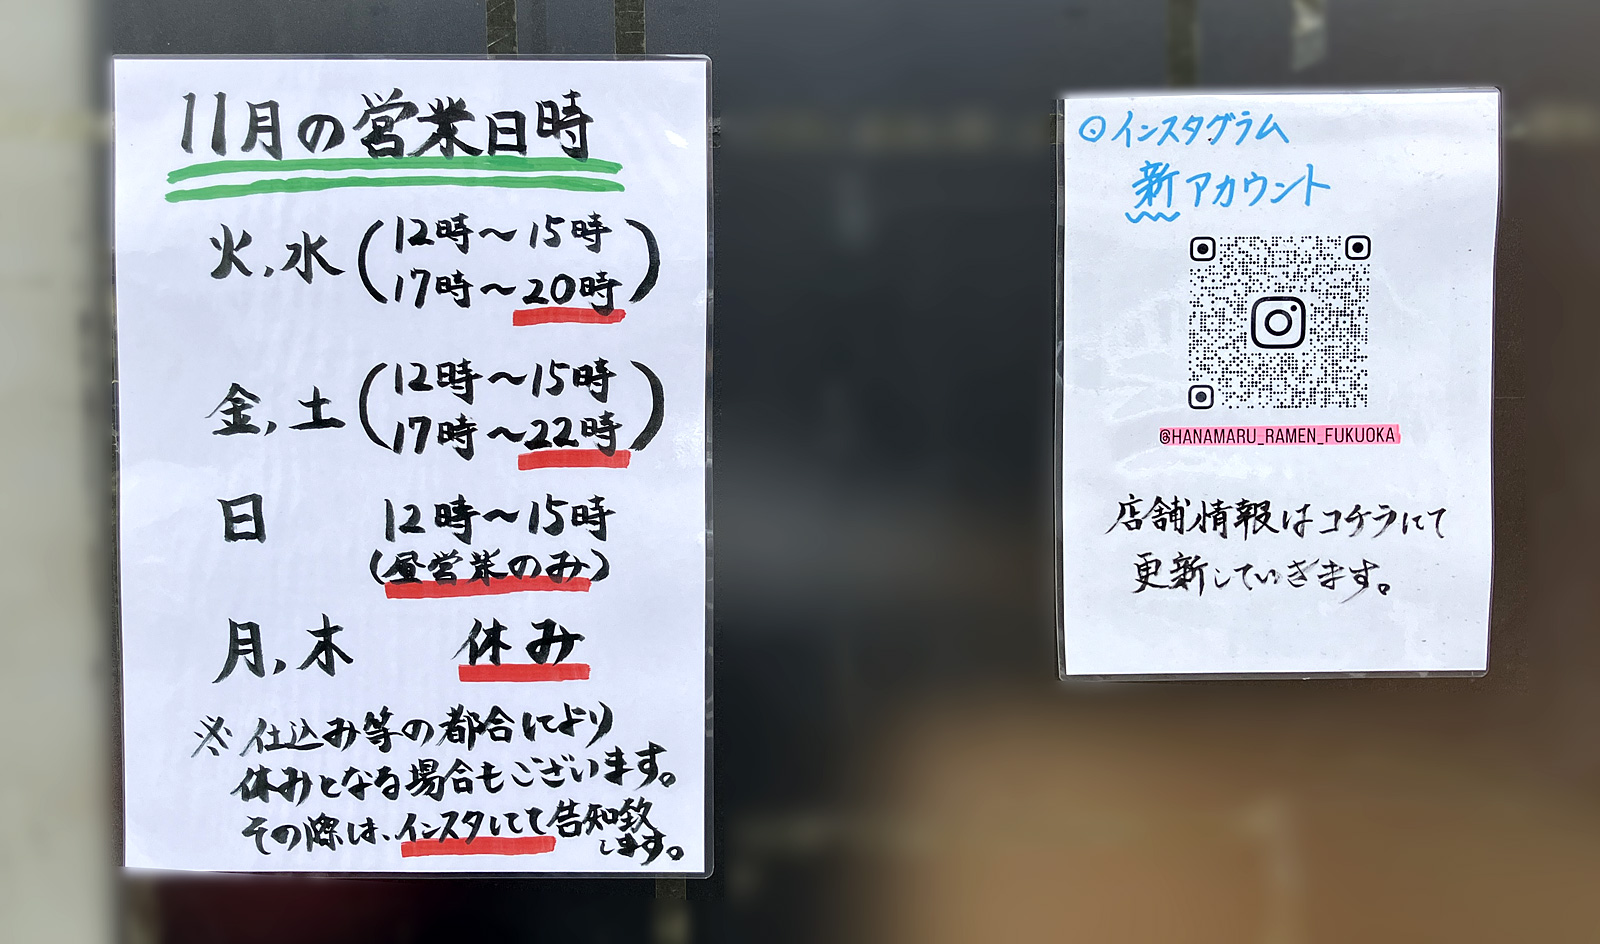 11月の営業日時
火,水 (12時〜15時
17時〜20時)
金,土 (12時〜15時
17時〜22時)
日 12時〜15時
(昼営業のみ)
月,木 休み
※仕込み等の都合により
休みとなる場合もございます。
その際は、インスタにて告知致
します。
◎インスタグラム
新アカウント
@HANAMARU_RAMEN_FUKUOKA
店舗情報はコチラにて
更新していきます。